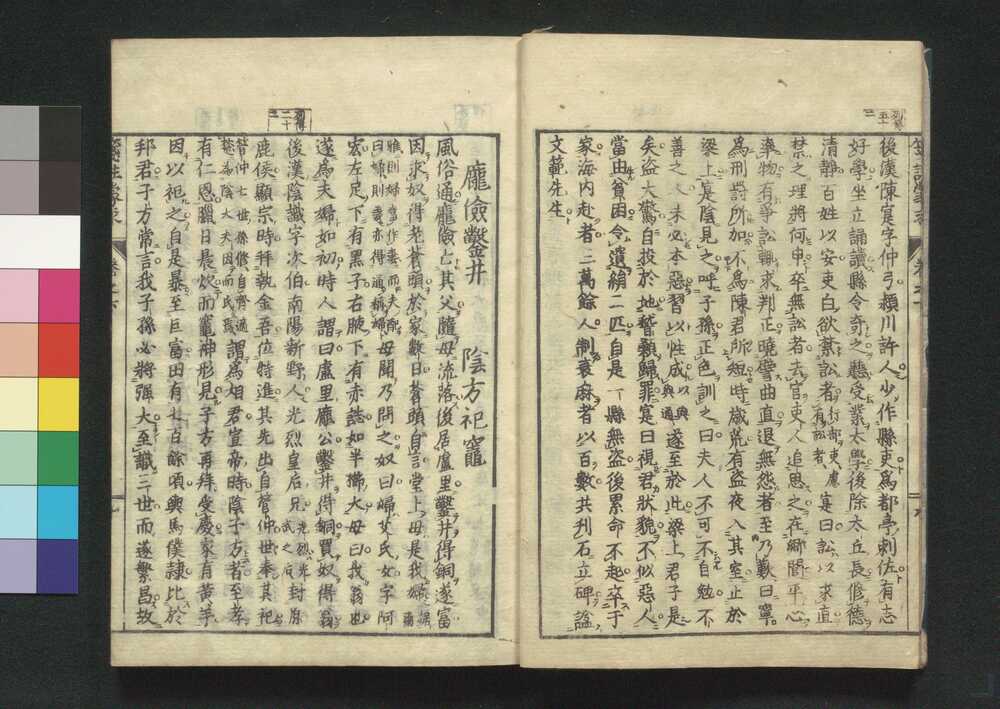 後漢陳寔字仲弓潁川許人少作縣吏爲都亭刺佐有志
好學坐立誦讀縣令奇之聽受業太學後除太丘長修德
清静百姓以安吏白欲禁訟者寔曰訟以求直
禁之理將何申卒無訟者去官吏人追思之在鄉閭平心
率物有爭訟輒求判正曉譬曲直退無怨者至乃歎曰寧
爲刑罸所加不爲陳君所短時歲荒有盗夜入其室止於
梁上寔陰見之呼子孫正色訓之曰夫人不可不自勉不
善之人未必本惡習以性成遂至於此梁上君子是
矣盗大驚自投於地稽顙歸罪寔曰視君狀貌不似惡人
當由貧困令遺絹二匹自是一縣無盗後累命不起卒于
家海内赴者三萬餘人制衰麻者以百數共刋石立碑諡
文範先生
龐儉鑿井 陰方祀竈
風俗通龐儉亡其父隨母流落後居廬里鑿井得銅遂富
因求奴得老蒼頭於家數日蒼頭自言堂上母是我婦
母聞乃問之奴曰婦艾氏女字阿
宏左足下有黒子右腋下有赤誌如半櫛大母曰我翁也
遂爲夫婦如初時人謂曰廬里龐公鑿井得銅買奴得翁
後漢陰識字次伯南陽新野人光烈皇后兄封原
鹿侯顯宗時拜執金吾位特進其先出自管仲世奉其祀
謂爲相君宣帝時陰子方者至孝
有仁恩臘日晨炊而竈神形見子方再拜受慶家有黄羊
因以祀之自是暴至巨富田有七百餘頃輿馬僕隸比於
邦君子方常言我子孫必將强大至識三世而遂繁昌故